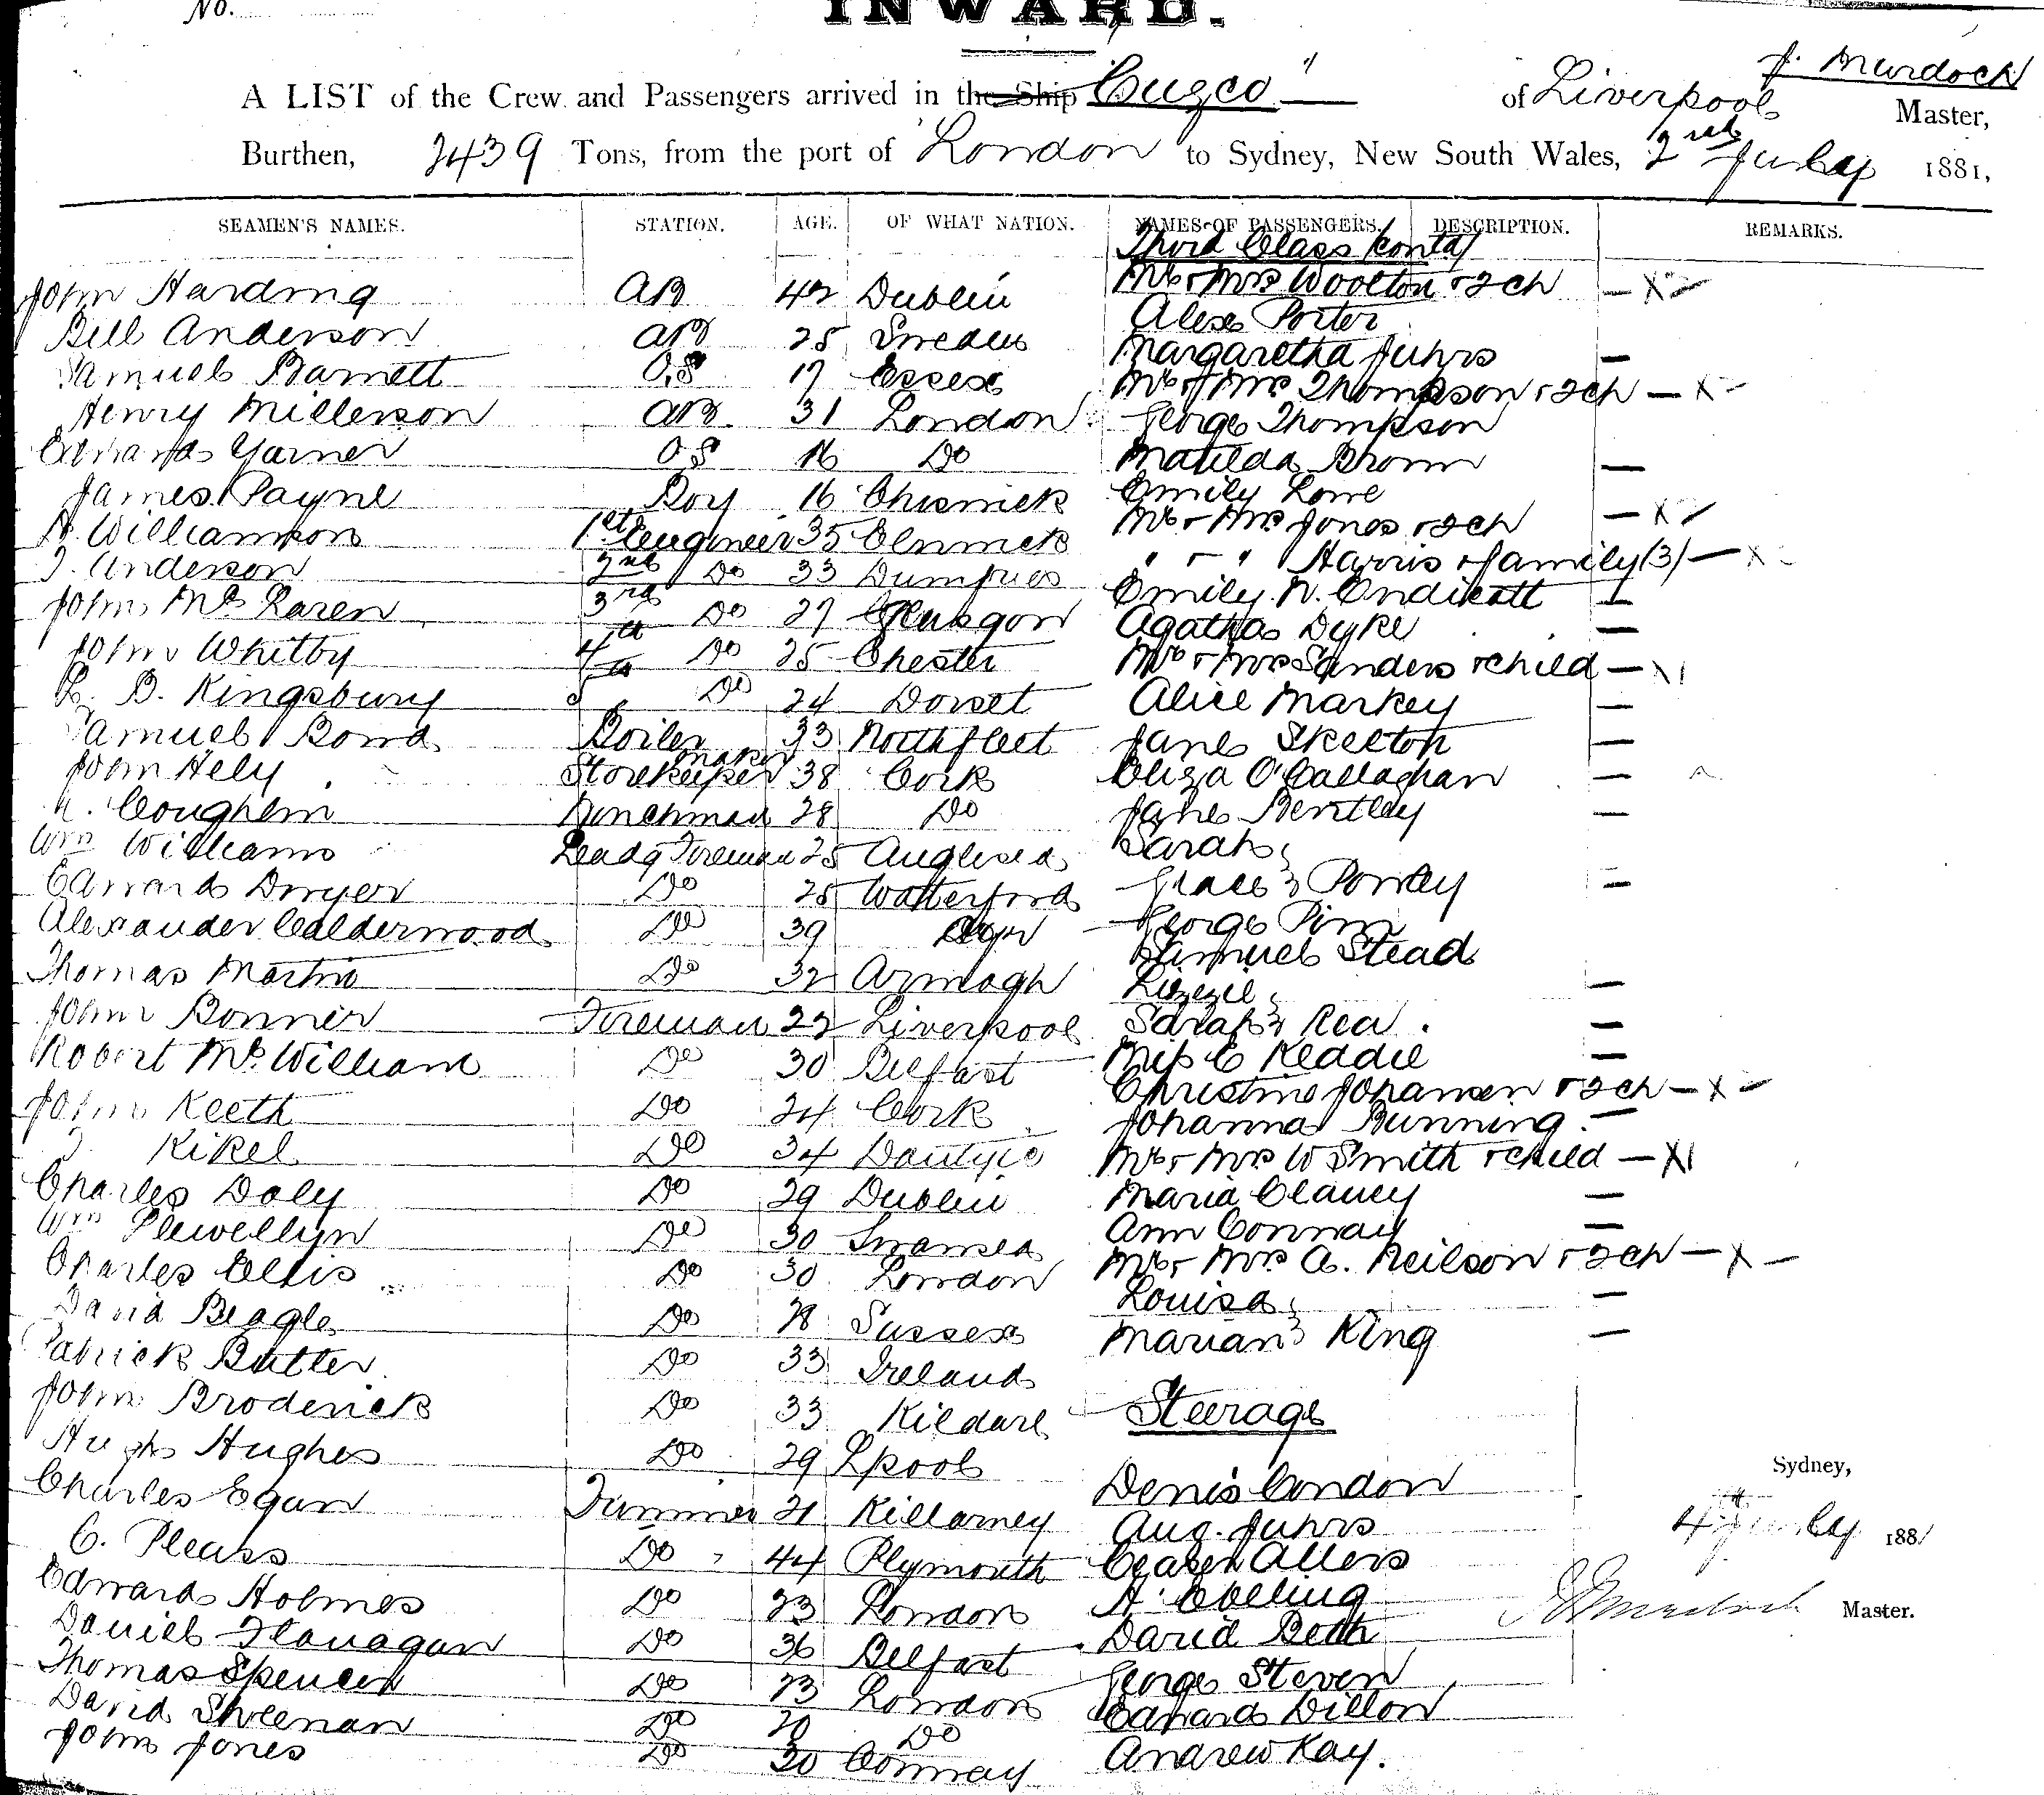 No.
INWARD.
A LIST of the Crew and Passengers arrived in the Ship "Cuzco" of Liverpool J. Murdoch Master,
Burthen, 2439 Tons, from the port of London to Sydney, New South Wales, 2nd July 1881,
SEAMEN'S NAMES. STATION. AGE. OF WHAT NATION. NAMES OF PASSENGERS. DESCRIPTION. REMARKS.
Third Class Contd
John Harding AB 42 Dublin Mr & Mrs Woolton & 2 ch — X 2
Bill Anderson AB 25 Sweden Alex Porter
Samuel Barnett O.S 17 Essex Margaretha Juhrs —
Henry Millerson AB 31 London Mr & Mrs Thompson & 2 ch — X 2
George Thompson
Edward Garner OS 16 Do Matilda Brown —
James Payne Boy 16 Chiswick Emily Lowe
A. Williamson 1st Engineer 35 Mr & Mrs Jones & 2 ch — X 2
J. Anderson 2nd Do 33 Dumfries " & " Harris & family (3) — X
John McLaren 3rd Do 27 Glasgow Emily N. Endicott —
John Whitby 4th Do 25 Chester Agatha Dyke —
Mr & Mrs Sanders & child — X 1
L. B. Kingsbury 5th Do 24 Dorset Alice Markey —
Samuel Bond Boiler maker 33 Northfleet Jane Skelton —
John Hely Storekeeper 38 Cork Eliza O'Callaghan —
Coughlin 28 Do Jane Bentley —
Wm Williams Leadg Fireman 25 Anglesea Sarah
Edward Dwyer Do 25 Watterford Grace } Powley —
Alexander Calderwood Do 39 Ayr George Pim
Samuel Stead
Thomas Martin Do 32 Armagh Lizzie —
John Bonner Fireman 22 Liverpool Sarah } Rea. —
Robert McWilliam Do 30 Belfast Miss E Keddie —
Christine Johansen & 2 ch — X 2
John Keeth Do 24 Cork Johanna Bunning. —
J. Kikel Do 34 Dantzic Mr & Mrs W Smith & child — X 1
Charles Daly Do 29 Dublin Maria Clancy —
Wm Llewellyn Do 30 Swansea Ann Conway —
Charles Ellis Do 30 London Mr & Mrs A. Neilson & 2 ch — X —
David Beagle Do 28 Sussex Louisa —
Patrick Butler Do 33 Ireland Marian } King —
John Broderick Do 33 Kildare Steerage
Hugh Hughes Do 29 Lpool Denis Condon
Sydney,
Charles Egan Trimmer 21 Killarney Aug. Juhrs
4th July 1881
C. Pleass Do 44 Plymouth Ceasar Allers
Edward Holmes Do 23 London A. Ebeling
J Murdoch Master.
Daniel Flanagan Do 36 Belfast David Beth
Thomas Spencer Do 23 London George Steven
David Sheenan Do 20 Do Edward Dillon
John Jones Do 30 Conway Andrew Kay.